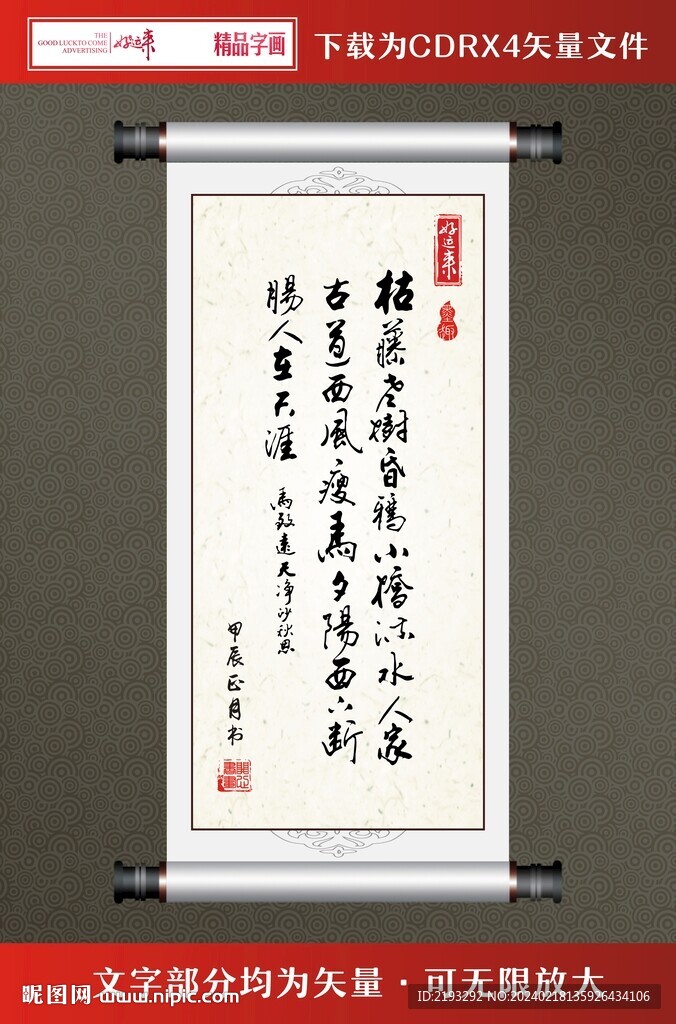 THE
GOOD LUCKTO COME
ADVERTISING
好运来
精品字画
下载为CDRX4矢量文件
好运来
枯藤老樹昏鴉小橋流水人家
古道西風瘦馬夕陽西下斷
腸人在天涯
馬致遠天净沙秋思
甲辰正月书
文字部分均为矢量·可无限放大
昵图网 www.nipic.com
ID:2193292 NO:20240218135926434106